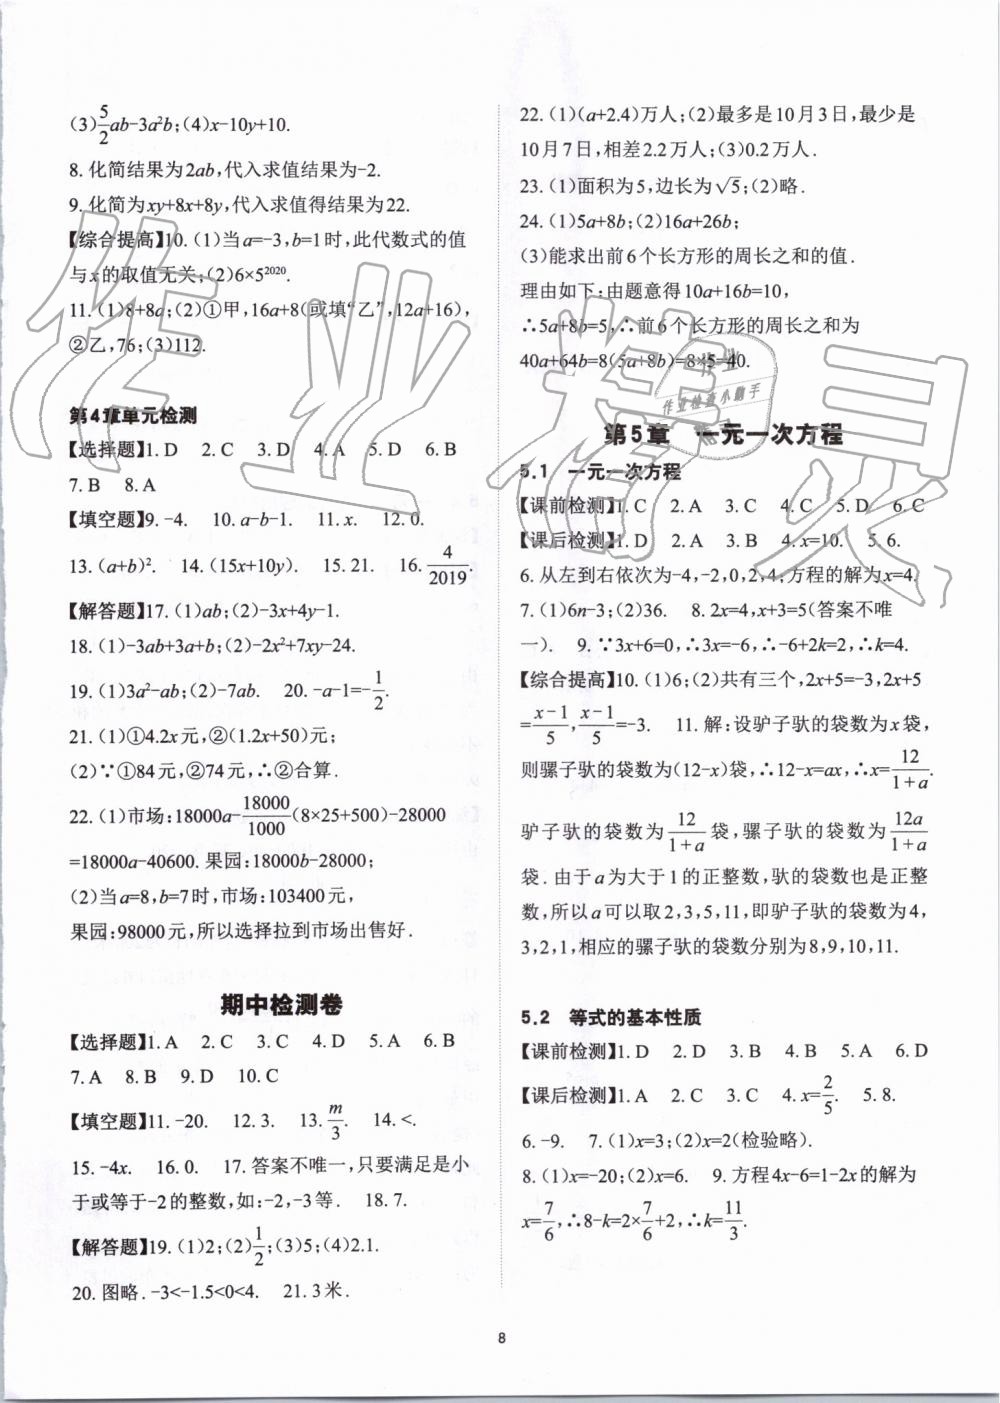 (3)5/2ab-3a²b;(4)x-10y+10.
8.化简结果为2ab,代入求值结果为-2.
9.化简为xy+8x+8y,代入求值得结果为22.
【综合提高】10.(1)当a=-3,b=1时,此代数式的值
与x的取值无关;(2)6×5²⁰²⁰.
11.(1)8+8a;(2)①甲,16a+8(或填“乙”,12a+16),
②乙,76;(3)112.
第4章单元检测
【选择题】1.D 2.C 3.C 4.C 5.D 6.B
7.B 8.A
【填空题】9.-4. 10.a-b-1. 11.x. 12.0.
13.(a+b)². 14.(15x+10y). 15.21. 16.4/2019.
【解答题】17.(1)ab;(2)-3x+4y-1.
18.(1)-3ab+3a+b;(2)-2x²+7xy-24.
19.(1)3a²-ab;(2)-7ab. 20.-a-1=-1/2.
21.(1)①4.2x元,②(1.2x+50)元;
(2)∵①84元,②74元,∴②合算.
22.(1)市场:18000a-18000/1000(8×25+500)-28000
=18000a-40600.果园:18000b-28000;
(2)当a=8,b=7时,市场:103400元,
果园:98000元,所以选择拉到市场出售好.
期中检测卷
【选择题】1.A 2.C 3.C 4.D 5.A 6.B
7.A 8.B 9.D 10.C
【填空题】11.-20. 12.3. 13.m/3. 14.<.
15.-4x. 16.0. 17.答案不唯一,只要满足是小
于或等于-2的整数,如:-2,-3等. 18.7.
【解答题】19.(1)2;(2)1/2;(3)5;(4)2.1.
20.图略.-3<-1.5<0<4. 21.3米.
22.(1)(a+2.4)万人;(2)最多是10月3日,最少是
10月7日,相差2.2万人;(3)0.2万人.
23.(1)面积为5,边长为√5;(2)略.
24.(1)5a+8b;(2)16a+26b;
(3)能求出前6个长方形的周长之和的值.
理由如下:由题意得10a+16b=10,
∴5a+8b=5,∴前6个长方形的周长之和为
40a+64b=8(5a+8b)=8×5=40.
第5章 一元一次方程
5.1 一元一次方程
【课前检测】1.C 2.A 3.C 4.C 5.D 6.C
【课后检测】1.D 2.A 3.B 4.x=10. 5.6.
6.从左到右依次为-4,-2,0,2,4;方程的解为x=4.
7.(1)6n-3;(2)36. 8.2x=4,x+3=5(答案不唯
一). 9.∵3x+6=0,∴3x=-6,∴-6+2k=2,∴k=4.
【综合提高】10.(1)6;(2)共有三个,2x+5=-3,2x+5
=x-1/5,x-1/5=-3. 11.解:设驴子驮的袋数为x袋,
则骡子驮的袋数为(12-x)袋,∴12-x=ax,∴x=12/1+a.
驴子驮的袋数为12/1+a袋,骡子驮的袋数为12a/1+a
袋.由于a为大于1的正整数,驮的袋数也是正整
数,所以a可以取2,3,5,11,即驴子驮的袋数为4,
3,2,1,相应的骡子驮的袋数分别为8,9,10,11.
5.2 等式的基本性质
【课前检测】1.D 2.D 3.B 4.B 5.A 6.D
【课后检测】1.A 2.C 3.C 4.x=2/5. 5.8.
6.-9. 7.(1)x=3;(2)x=2(检验略).
8.(1)x=-20;(2)x=6. 9.方程4x-6=1-2x的解为
x=7/6,∴8-k=2×7/6+2,∴k=11/3.
8
作业精灵
作业
作业检查小助手